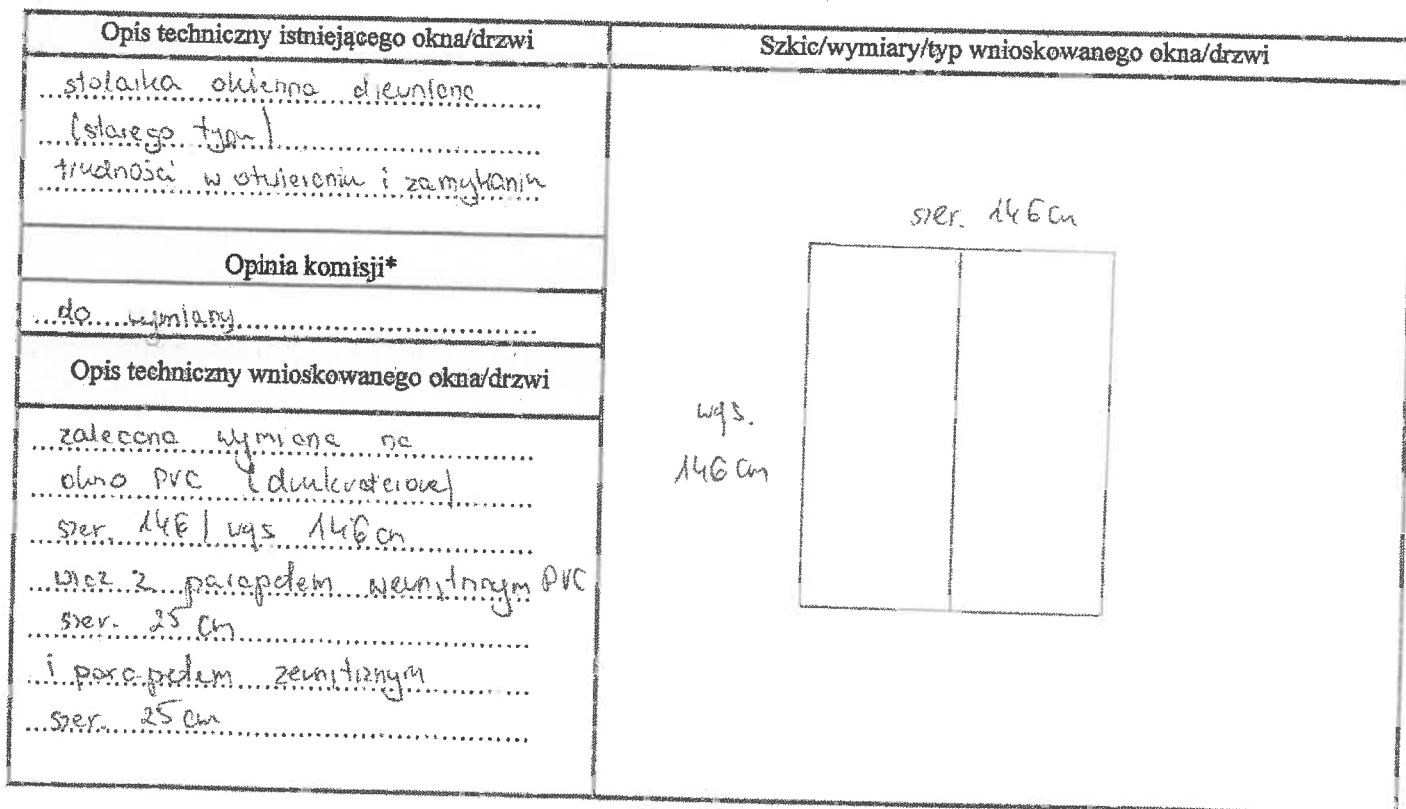 Opis techniczny istniejącego okna/drzwi
stolarka okienna drewniana
(starego typu)
trudności w otwieraniu i zamykaniu
Opinia komisji*
do wymiany
Opis techniczny wnioskowanego okna/drzwi
zalecana wymiana na
okno PVC (dwukwaterowe)
szer. 146 / wys 146 cm
wraz z parapetem wewnętrznym PVC
szer. 25 cm
i parapetem zewnętrznym
szer. 25 cm
Szkic/wymiary/typ wnioskowanego okna/drzwi
szer. 146 cm
wys.
146 cm